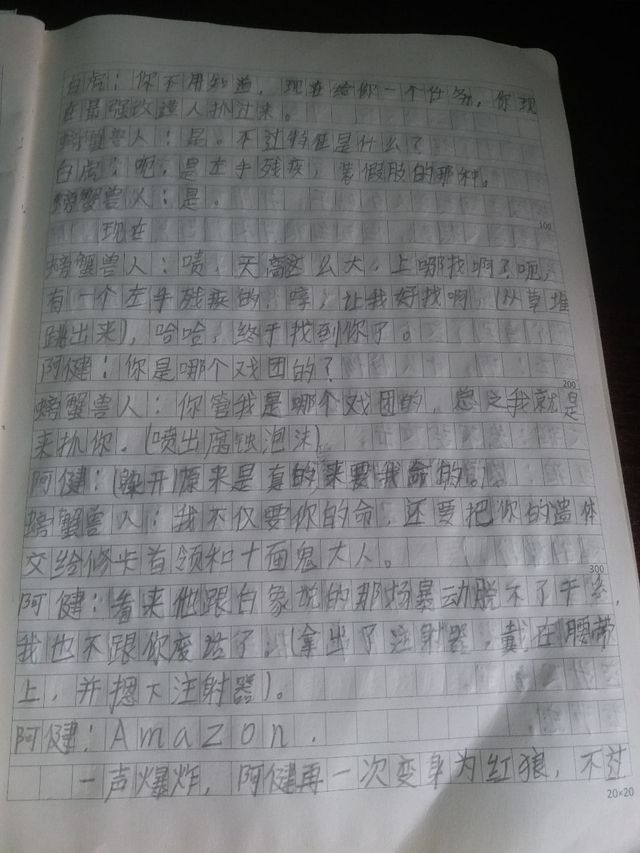 白虎：你不用知道，现在给你一个任务，你现
在最强改造人抓过来。
螃蟹兽人：是。不过特征是什么？
白虎：呃，是左手残疾，带假肢的那种。
螃蟹兽人：是。
现在
100
螃蟹兽人：啧，天高这么大，上哪找啊？呃，
有一个左手残疾的，哼，让我好找啊，（从草堆
跳出来），哈哈，终于找到你了。
阿健：你是哪个戏团的？
200
螃蟹兽人：你管我是哪个戏团的，总之我就是
来抓你。（喷出腐蚀泡沫）
阿健：（躲开）原来是真的，来要我命的。
螃蟹兽人：我不仅要你的命，还要把你的遗体
交给修卡首领和十面鬼大人。
300
阿健：看来他跟白象说的那场暴动脱不了干系，
我也不跟你废话了。（拿出了注射器，戴在腰带
上，并摁下注射器）。
阿健：Amazon．
一声爆炸，阿健再一次变身为红狼，不过
20×20